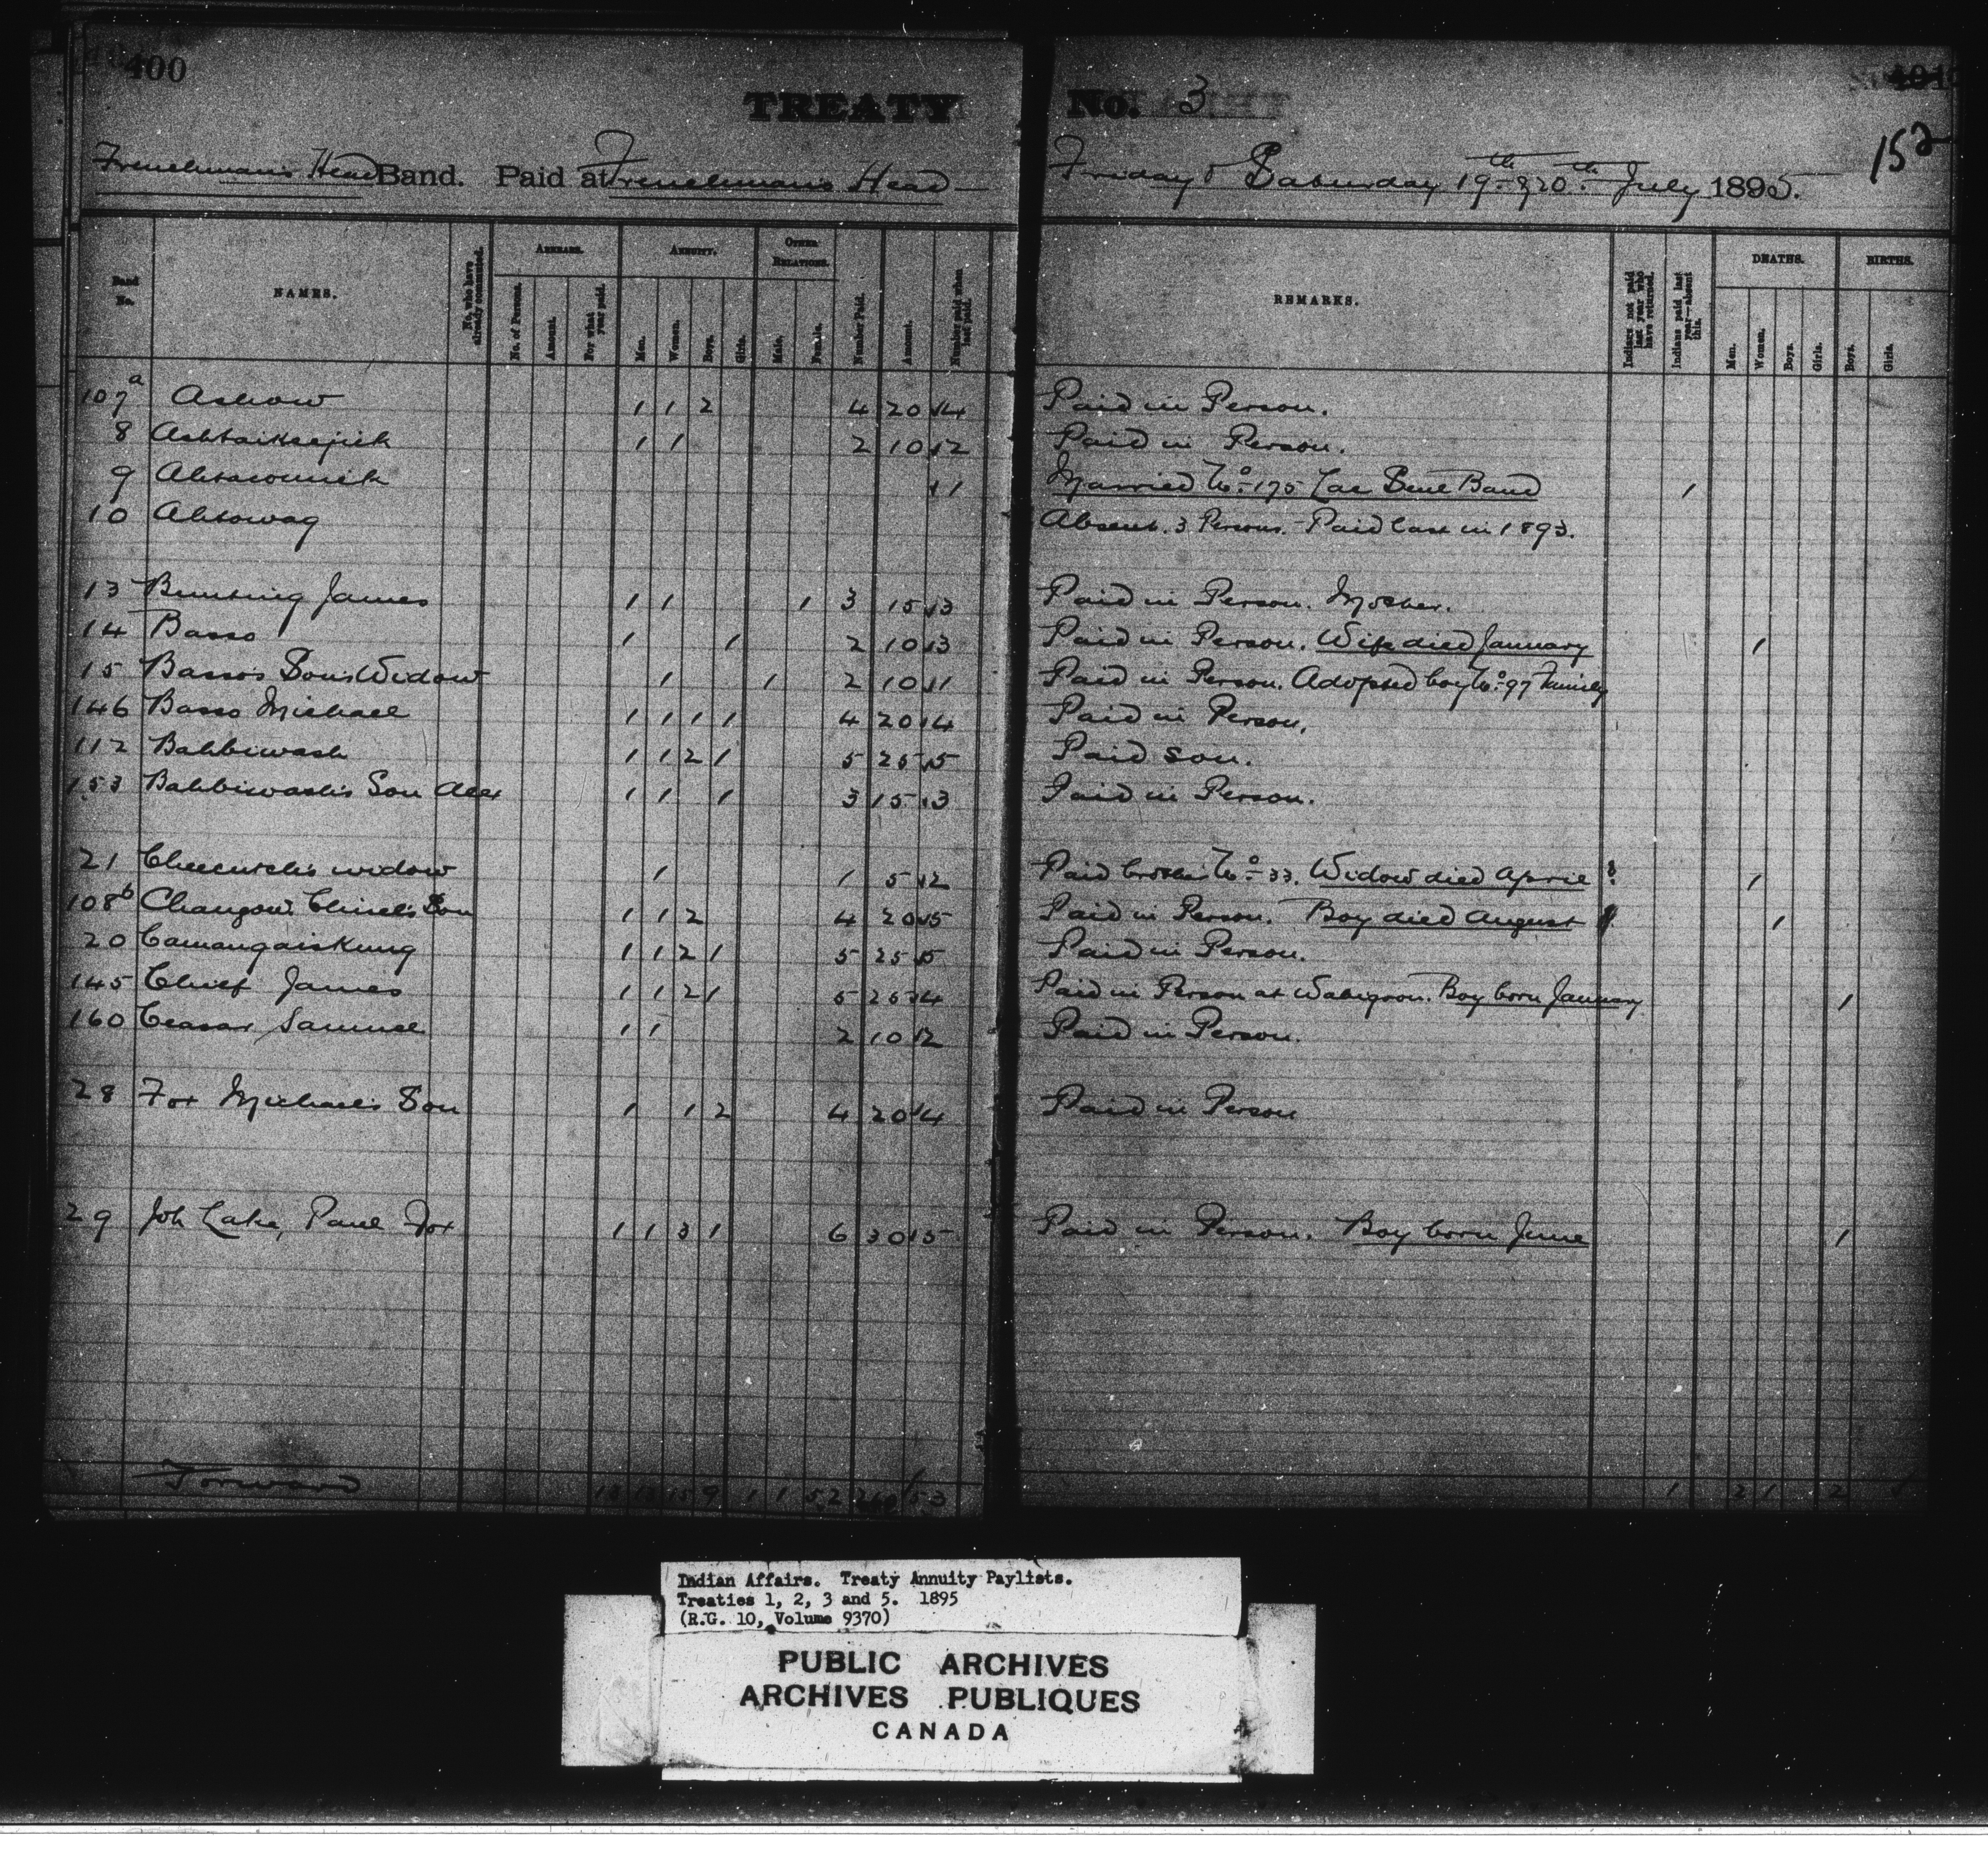 400
TREATY No. 3
152
Frenchman's Head Band. Paid at Frenchman's Head Friday & Saturday 19th & 20th July 1895.
Band No. NAMES. No. who have already commuted. ARREARS. No. of Persons. Amount. For what year paid. ANNUITY. Men. Women. Boys. Girls. OTHER RELATIONS. Male. Female. Number Paid. Amount. Number paid when last paid. REMARKS. Indians not paid last year who have returned. Indians paid last year—absent this. DEATHS. Men. Women. Boys. Girls. BIRTHS. Boys. Girls.
107a Ashow 1 1 2 4 20 4 Paid in Person.
8 Ashtaikeejick 1 1 2 10 2 Paid in Person.
9 1 Married No. 175 Lac Seul Band 1
10 Ahtowag Absent. 3 Persons. Paid last in 1893.
13 Bunting James 1 1 1 3 15 3 Paid in Person. Mother.
14 Basso 1 1 2 10 3 Paid in Person. Wife died January 1
15 Basso's Son's Widow 1 1 2 10 1 Paid in Person. Adopted boy No. 97 Family
146 Basso Michael 1 1 1 1 4 20 4 Paid in Person.
112 Bahbiwash 1 1 2 1 5 25 5 Paid son.
153 Bahbiwash's Son Alex 1 1 1 3 15 3 Paid in Person.
21 widow 1 1 5 2 Paid brother No. 33. Widow died April 1
108b Son 1 1 2 4 20 5 Paid in Person. Boy died August 1
20 Camangaiskung 1 1 2 1 5 25 5 Paid in Person.
145 Chief James 1 1 2 1 5 25 4 Paid in Person at Wabigoon. Boy born January 1
160 Ceasar Samuel 1 1 2 10 2 Paid in Person.
28 Fox Michael's Son 1 1 2 4 20 4 Paid in Person
29 Joh Lake, Paul Fox 1 1 3 1 6 30 5 Paid in Person. Boy born June 1
Forward 13 13 15 9 1 1 52 260 53 1 2 1 2
Indian Affairs. Treaty Annuity Paylists.
Treaties 1, 2, 3 and 5. 1895
(R.G. 10, Volume 9370)
PUBLIC ARCHIVES
ARCHIVES PUBLIQUES
CANADA